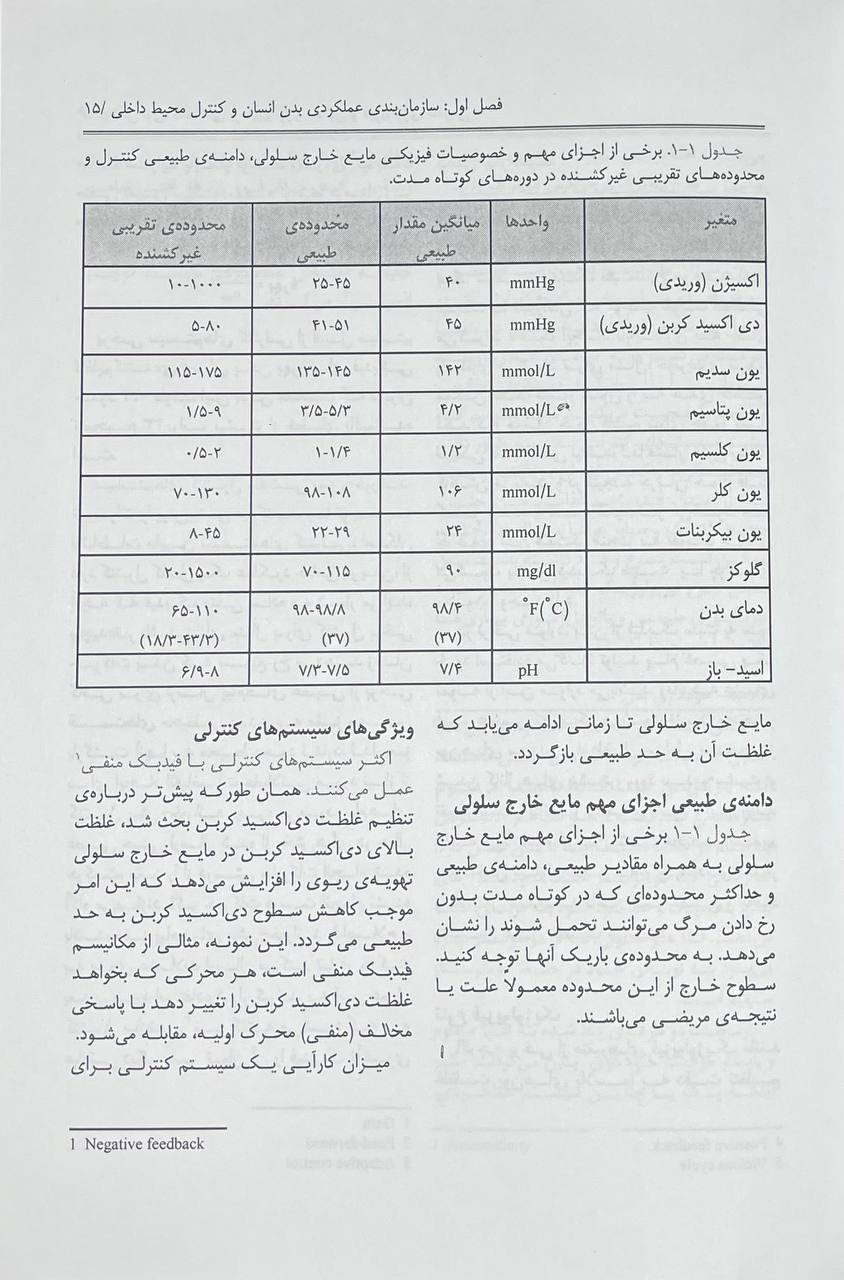 فصل اول: سازمان‌بندی عملکردی بدن انسان و کنترل محیط داخلی /۱۵
جدول ۱-۱. برخی از اجزای مهم و خصوصیات فیزیکی مایع خارج سلولی، دامنه‌ی طبیعی کنترل و
محدوده‌های تقریبی غیرکشنده در دوره‌های کوتاه مدت.
متغیر واحدها میانگین مقدار طبیعی محدوده‌ی طبیعی محدوده‌ی تقریبی غیرکشنده
اکسیژن (وریدی) mmHg ۴۰ ۲۵-۴۵ ۱۰-۱۰۰۰
دی اکسید کربن (وریدی) mmHg ۴۵ ۴۱-۵۱ ۵-۸۰
یون سدیم mmol/L ۱۴۲ ۱۳۵-۱۴۵ ۱۱۵-۱۷۵
یون پتاسیم mmol/L ۴/۲ ۳/۵-۵/۳ ۱/۵-۹
یون کلسیم mmol/L ۱/۲ ۱-۱/۴ ۰/۵-۲
یون کلر mmol/L ۱۰۶ ۹۸-۱۰۸ ۷۰-۱۳۰
یون بیکربنات mmol/L ۲۴ ۲۲-۲۹ ۸-۴۵
گلوکز mg/dl ۹۰ ۷۰-۱۱۵ ۲۰-۱۵۰۰
دمای بدن °F(°C) ۹۸/۴ ۹۸-۹۸/۸ ۶۵-۱۱۰
(۳۷) (۳۷) (۱۸/۳-۴۳/۳)
اسید- باز pH ۷/۴ ۷/۳-۷/۵ ۶/۹-۸
مایع خارج سلولی تا زمانی ادامه می‌یابد که
غلظت آن به حد طبیعی بازگردد.
دامنه‌ی طبیعی اجزای مهم مایع خارج سلولی
جدول ۱-۱ برخی از اجزای مهم مایع خارج
سلولی به همراه مقادیر طبیعی، دامنه‌ی طبیعی
و حداکثر محدوده‌ای که در کوتاه مدت بدون
رخ دادن مرگ می‌توانند تحمل شوند را نشان
می‌دهد. به محدوده‌ی باریک آنها توجه کنید.
سطوح خارج از این محدوده معمولاً علت یا
نتیجه‌ی مریضی می‌باشند.
ویژگی‌های سیستم‌های کنترلی
اکثر سیستم‌های کنترلی با فیدبک منفی۱
عمل می‌کنند. همان طورکه پیش‌تر درباره‌ی
تنظیم غلظت دی‌اکسید کربن بحث شد، غلظت
بالای دی‌اکسید کربن در مایع خارج سلولی
تهویه‌ی ریوی را افزایش می‌دهد که این امر
موجب کاهش سطوح دی‌اکسید کربن به حد
طبیعی می‌گردد. این نمونه، مثالی از مکانیسم
فیدبک منفی است، هر محرکی که بخواهد
غلظت دی‌اکسید کربن را تغییر دهد با پاسخی
مخالف (منفی) محرک اولیه، مقابله می‌شود.
میزان کارآیی یک سیستم کنترلی برای
1 Negative feedback